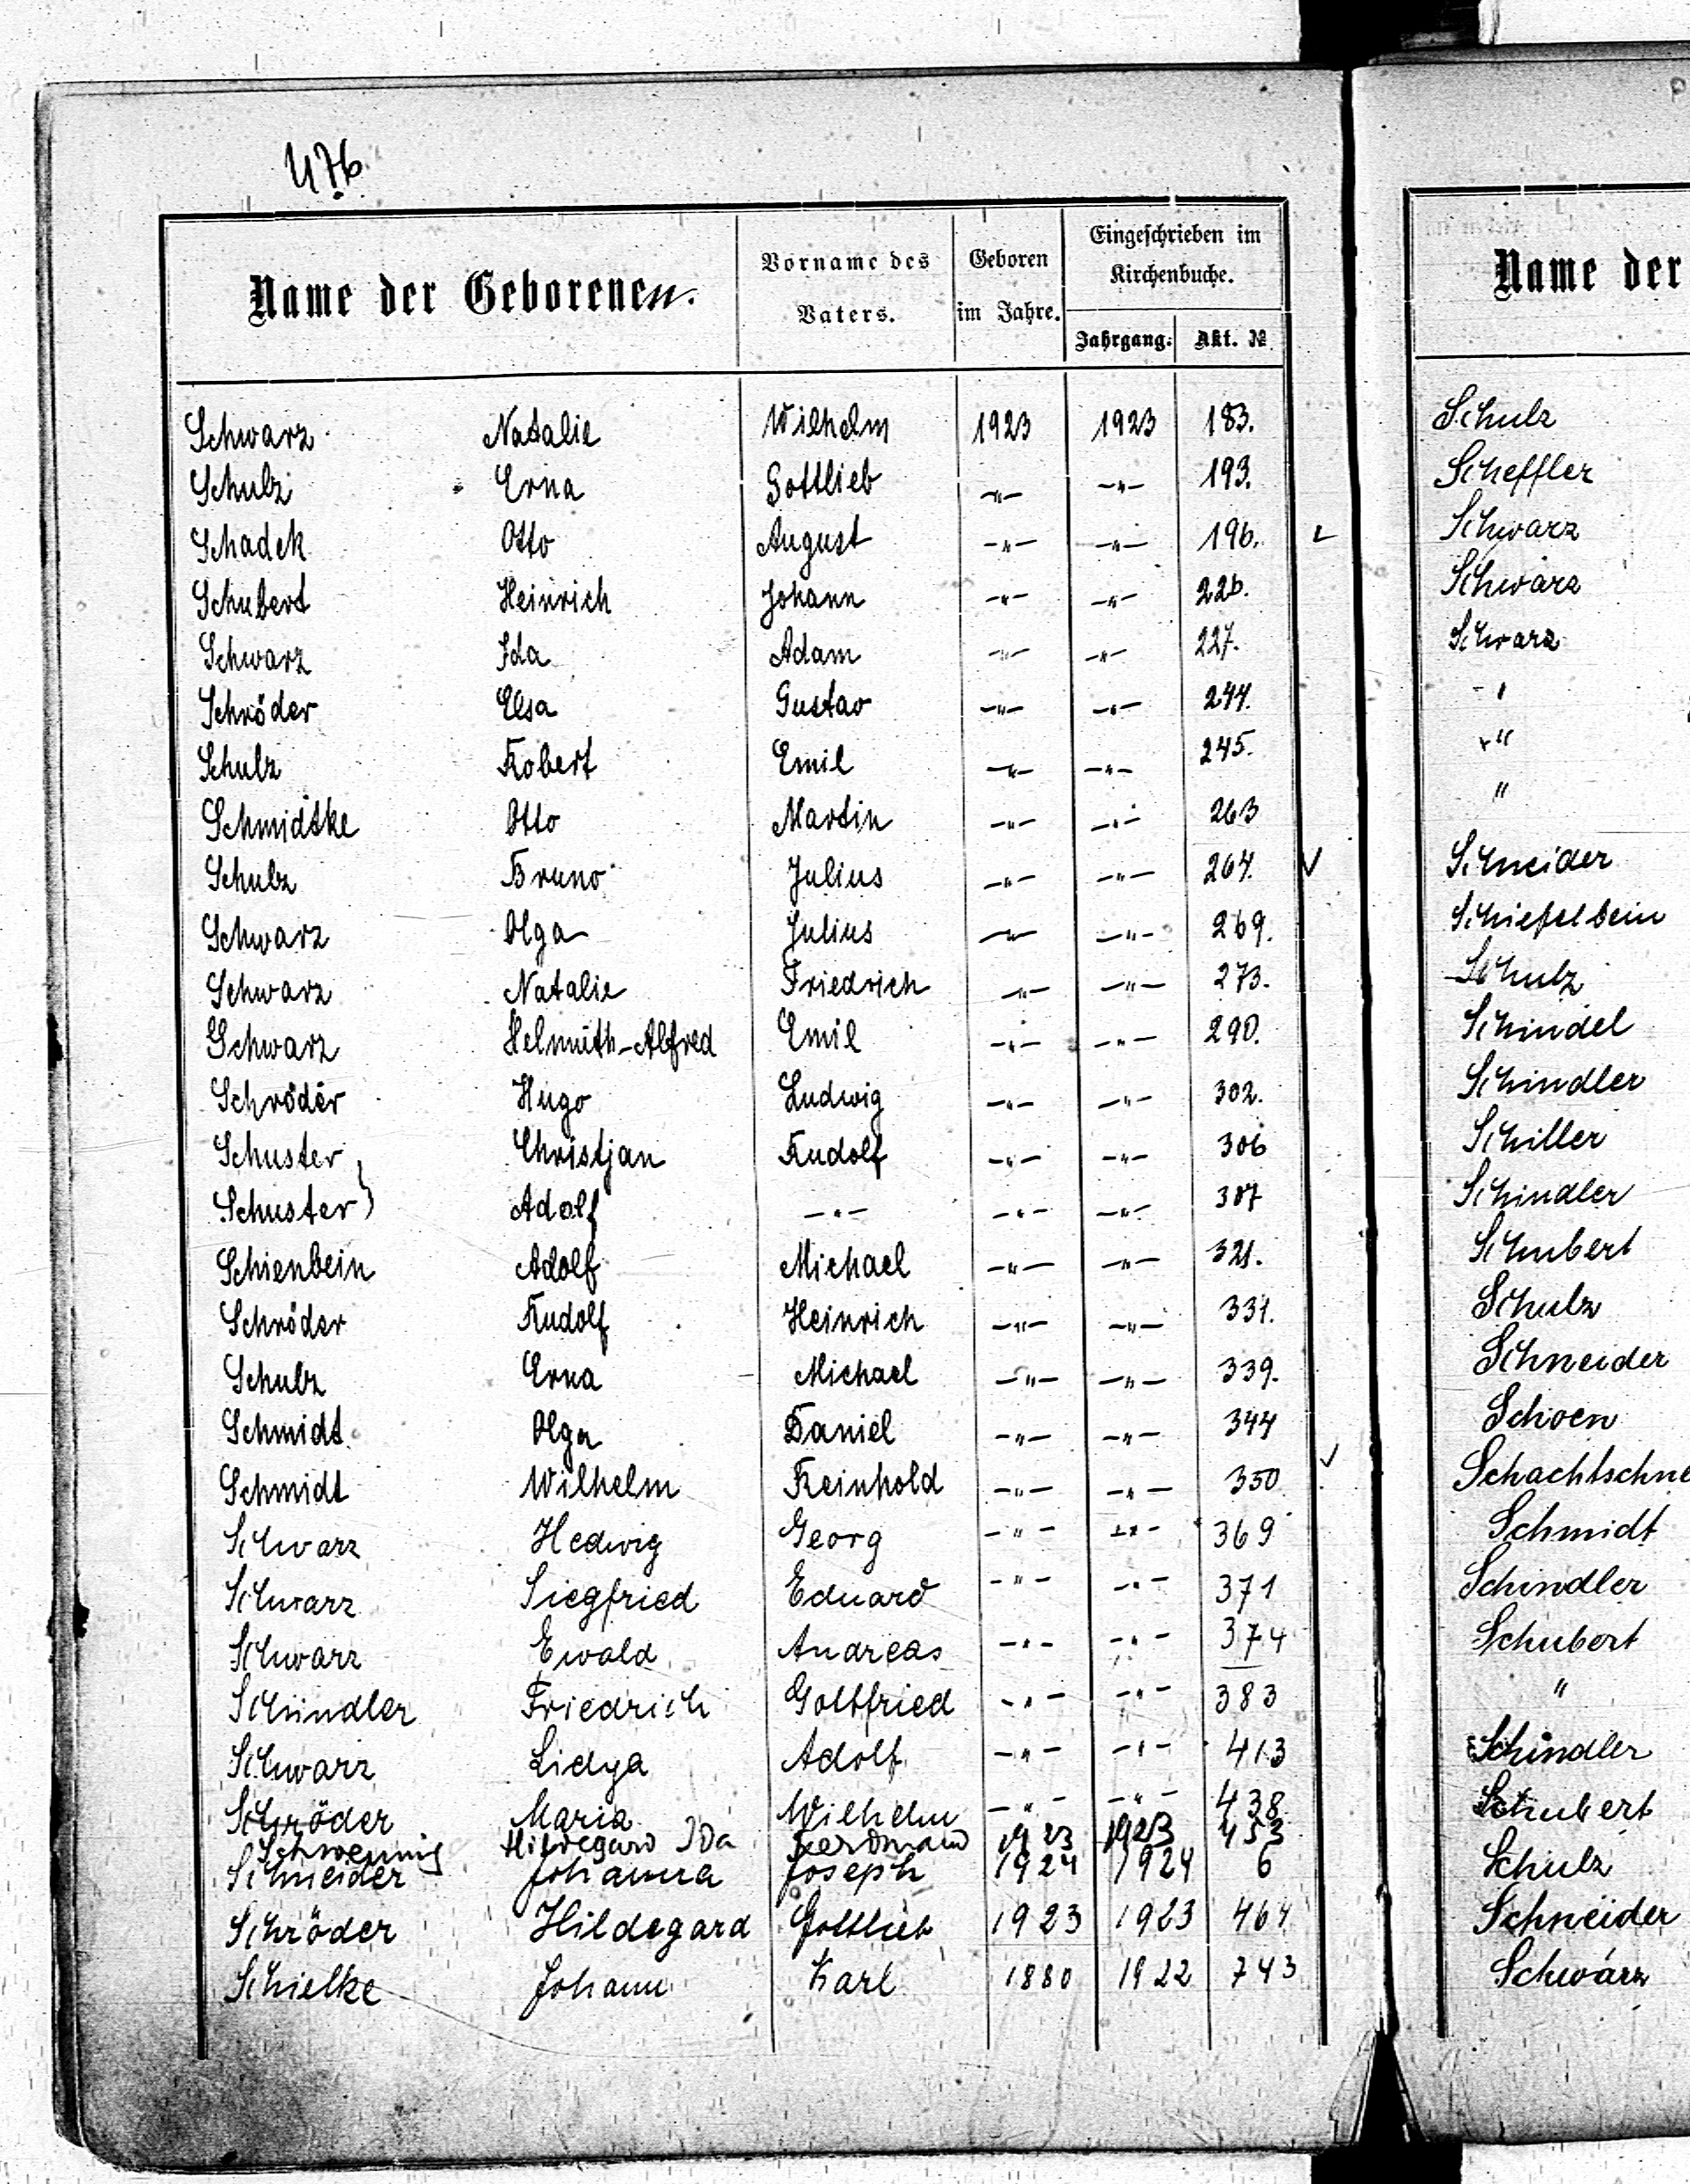 476.
Name der Geborenen.
Vorname des Vaters.
Geboren im Jahre.
Eingeschrieben im Kirchenbuche.
Jahrgang. Akt. №
Schwarz Natalie Wilhelm 1923 1923 183.
Schulz Erna Gottlieb —"— —"— 193.
Schadek Otto August —"— —"— 196.
Schubert Heinrich Johann —"— —"— 226.
Schwarz Ida Adam —"— —"— 227.
Schröder Elsa Gustav —"— —"— 244.
Schulz Robert Emil —"— —"— 245.
Schmidtke Otto Martin —"— —"— 263
Schulz Bruno Julius —"— —"— 264. ✓
Schwarz Olga Julius —"— —"— 269.
Schwarz Natalie Friedrich —"— —"— 273.
Schwarz Helmuth-Alfred Emil —"— —"— 290.
Schröder Hugo Ludwig —"— —"— 302.
Schuster } Christjan Rudolf —"— —"— 306
Schuster } Adolf —"— —"— —"— 307
Schienbein Adolf Michael —"— —"— 321.
Schröder Rudolf Heinrich —"— —"— 331.
Schulz Erna Michael —"— —"— 339.
Schmidt Olga Daniel —"— —"— 344
Schmidt Wilhelm Reinhold —"— —"— 350 ✓
Schwarz Hedwig Georg —"— —"— 369
Schwarz Siegfried Eduard —"— —"— 371
Schwarz Ewald Andreas —"— —"— 374
Schindler Friedrich Gottfried —"— —"— 383
Schwarz Lidya Adolf —"— —"— 413
Schröder Maria Wilhelm —"— —"— 438
Schwennig Hildegard Ida Ferdinand 1923 1923 453
Schneider Johanna Joseph 1924 1924 6
Schröder Hildegard Gottlieb 1923 1923 464
Schielke Johann Karl 1880 1922 743
Name der
Schulz
Scheffler
Schwarz
Schwarz
Schwarz
"
"
"
Schneider
Schiefelbein
Schulz
Schindel
Schindler
Schiller
Schindler
Schubert
Schulz
Schneider
Schoen
Schachtschne
Schmidt
Schindler
Schubert
"
Schindler
Schubert
Schulz
Schneider
Schwarz